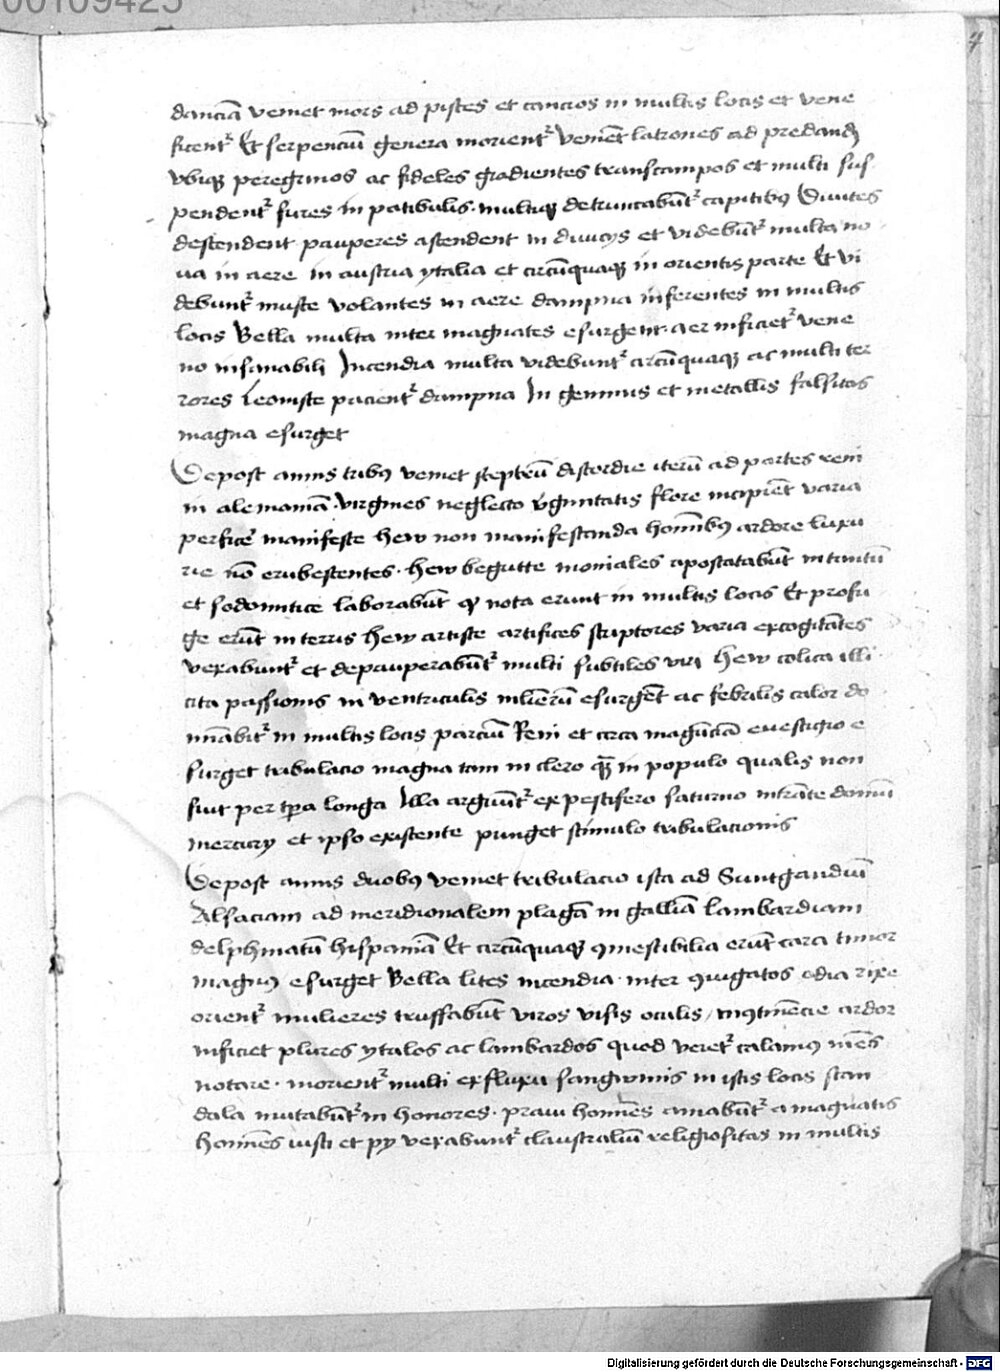 00109423
7
danciā veniet mors ad pisces et cancros in multis locis et vene
ficent᷑ Et serpenciū genera morient᷑ Veniēt latrones ad predandū
vbiqꝫ peregrinos ac fideles gradientes trans campos et multi sus
pendent᷑ fures in patibulis. multiqꝫ detruncabūt᷑ capitibꝰ Diuites
descendent pauperes ascendent in diuicijs et videbūt᷑ multa no
ua in aere in austria ytalia et circūquaqꝫ in orientis parte Et vi
debunt᷑ musce volantes in aere dampna inferentes in multis
locis Bella multa inter magnates esurgent. aer inficiet᷑ vene
no insanabili Incendia multa videbunt᷑ circūquaqꝫ ac multi ter
rores Leoniste pacient᷑ dampna In gemmis et metallis falsitas
magna esurget
Depost annis tribꝰ veniet sceptrū discordie iterū ad partes reni
in alemaniā. virgines neglecto v̓ginitatis flore incipiēt varia
perficer̓ manifeste hew non manifestanda hominībꝰ ardore luxu
rie nō erubescentes. hew begutte moniales apostatabūt in tantū
et sodomitice laborabūt qꝫ nota erunt in multis locis Et profu
ge erūt in terris hew artiste artifices scriptores varia excogitātes
vexabunt᷑ et depauperabūt᷑ multi subtiles viri hew colica illi
cita passionis in ventriculis mlierū esurgēt ac febrilis calor do
minābit᷑ in multis locis parciū Reni et circa magūciā e vestigio e
surget tribulacio magna tam in clero qꝫ̄ in populo qualis non
fuit per tp̄a longa Illa arguūt᷑ ex pestifero saturno intrāte domū
mercurij et ipso existente punget stimulo tribulacionis
Depost annis duobꝰ veniet tribulacio ista ad Suntgaudiū
Alsaciam ad meridionalem plagā in galliā lambardiam
delphinatū hispaniā Et circūquaqꝫ ꝯmestibilia erūt cara timor
magnꝰ esurget Bella lites incendia. inter ꝯiugatos odia rixe
orient᷑ mulieres truffabūt viros visis oculis / ꝯtinēcie ardor
inficiet plures ytalos ac lambardos quod veret᷑ calamꝰ meꝰ
notare. morient᷑ multi ex fluxu sangwinis in istis locis scan
dala mutabūt᷑ in honores. praui homīes amabūt᷑ a magnatis
homīnes iusti et pij vexabunt᷑ claustraliū religiositas in multis
Digitalisierung gefördert durch die Deutsche Forschungsgemeinschaft - DFG